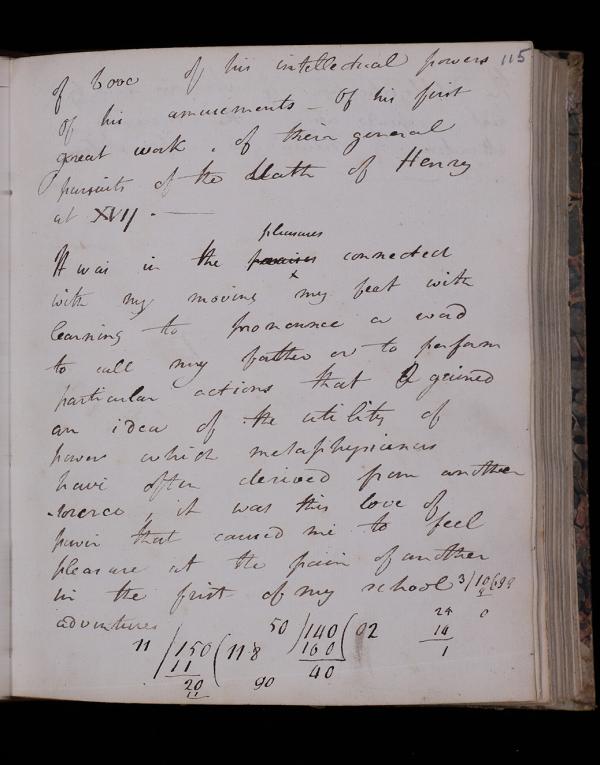 115
of love of his intellectual powers
of his amusements - Of his first
great work . of their general
pursuits of the death of Henry
at XVII . —
pleasures
It was in the connected
with my moving my feet with
learning to pronounce a word
to call my father or to perform
particular actions that I gained
an idea of the utility of
power which metaphysicians
have often derived from another
source , it was this love of
power that caused me to feel
pleasure at the pain of another
in the first of my school
adventures
3/10(
9
0
24
14
1
11/150(11·8
11
20
11
90
50)140(02
100
40